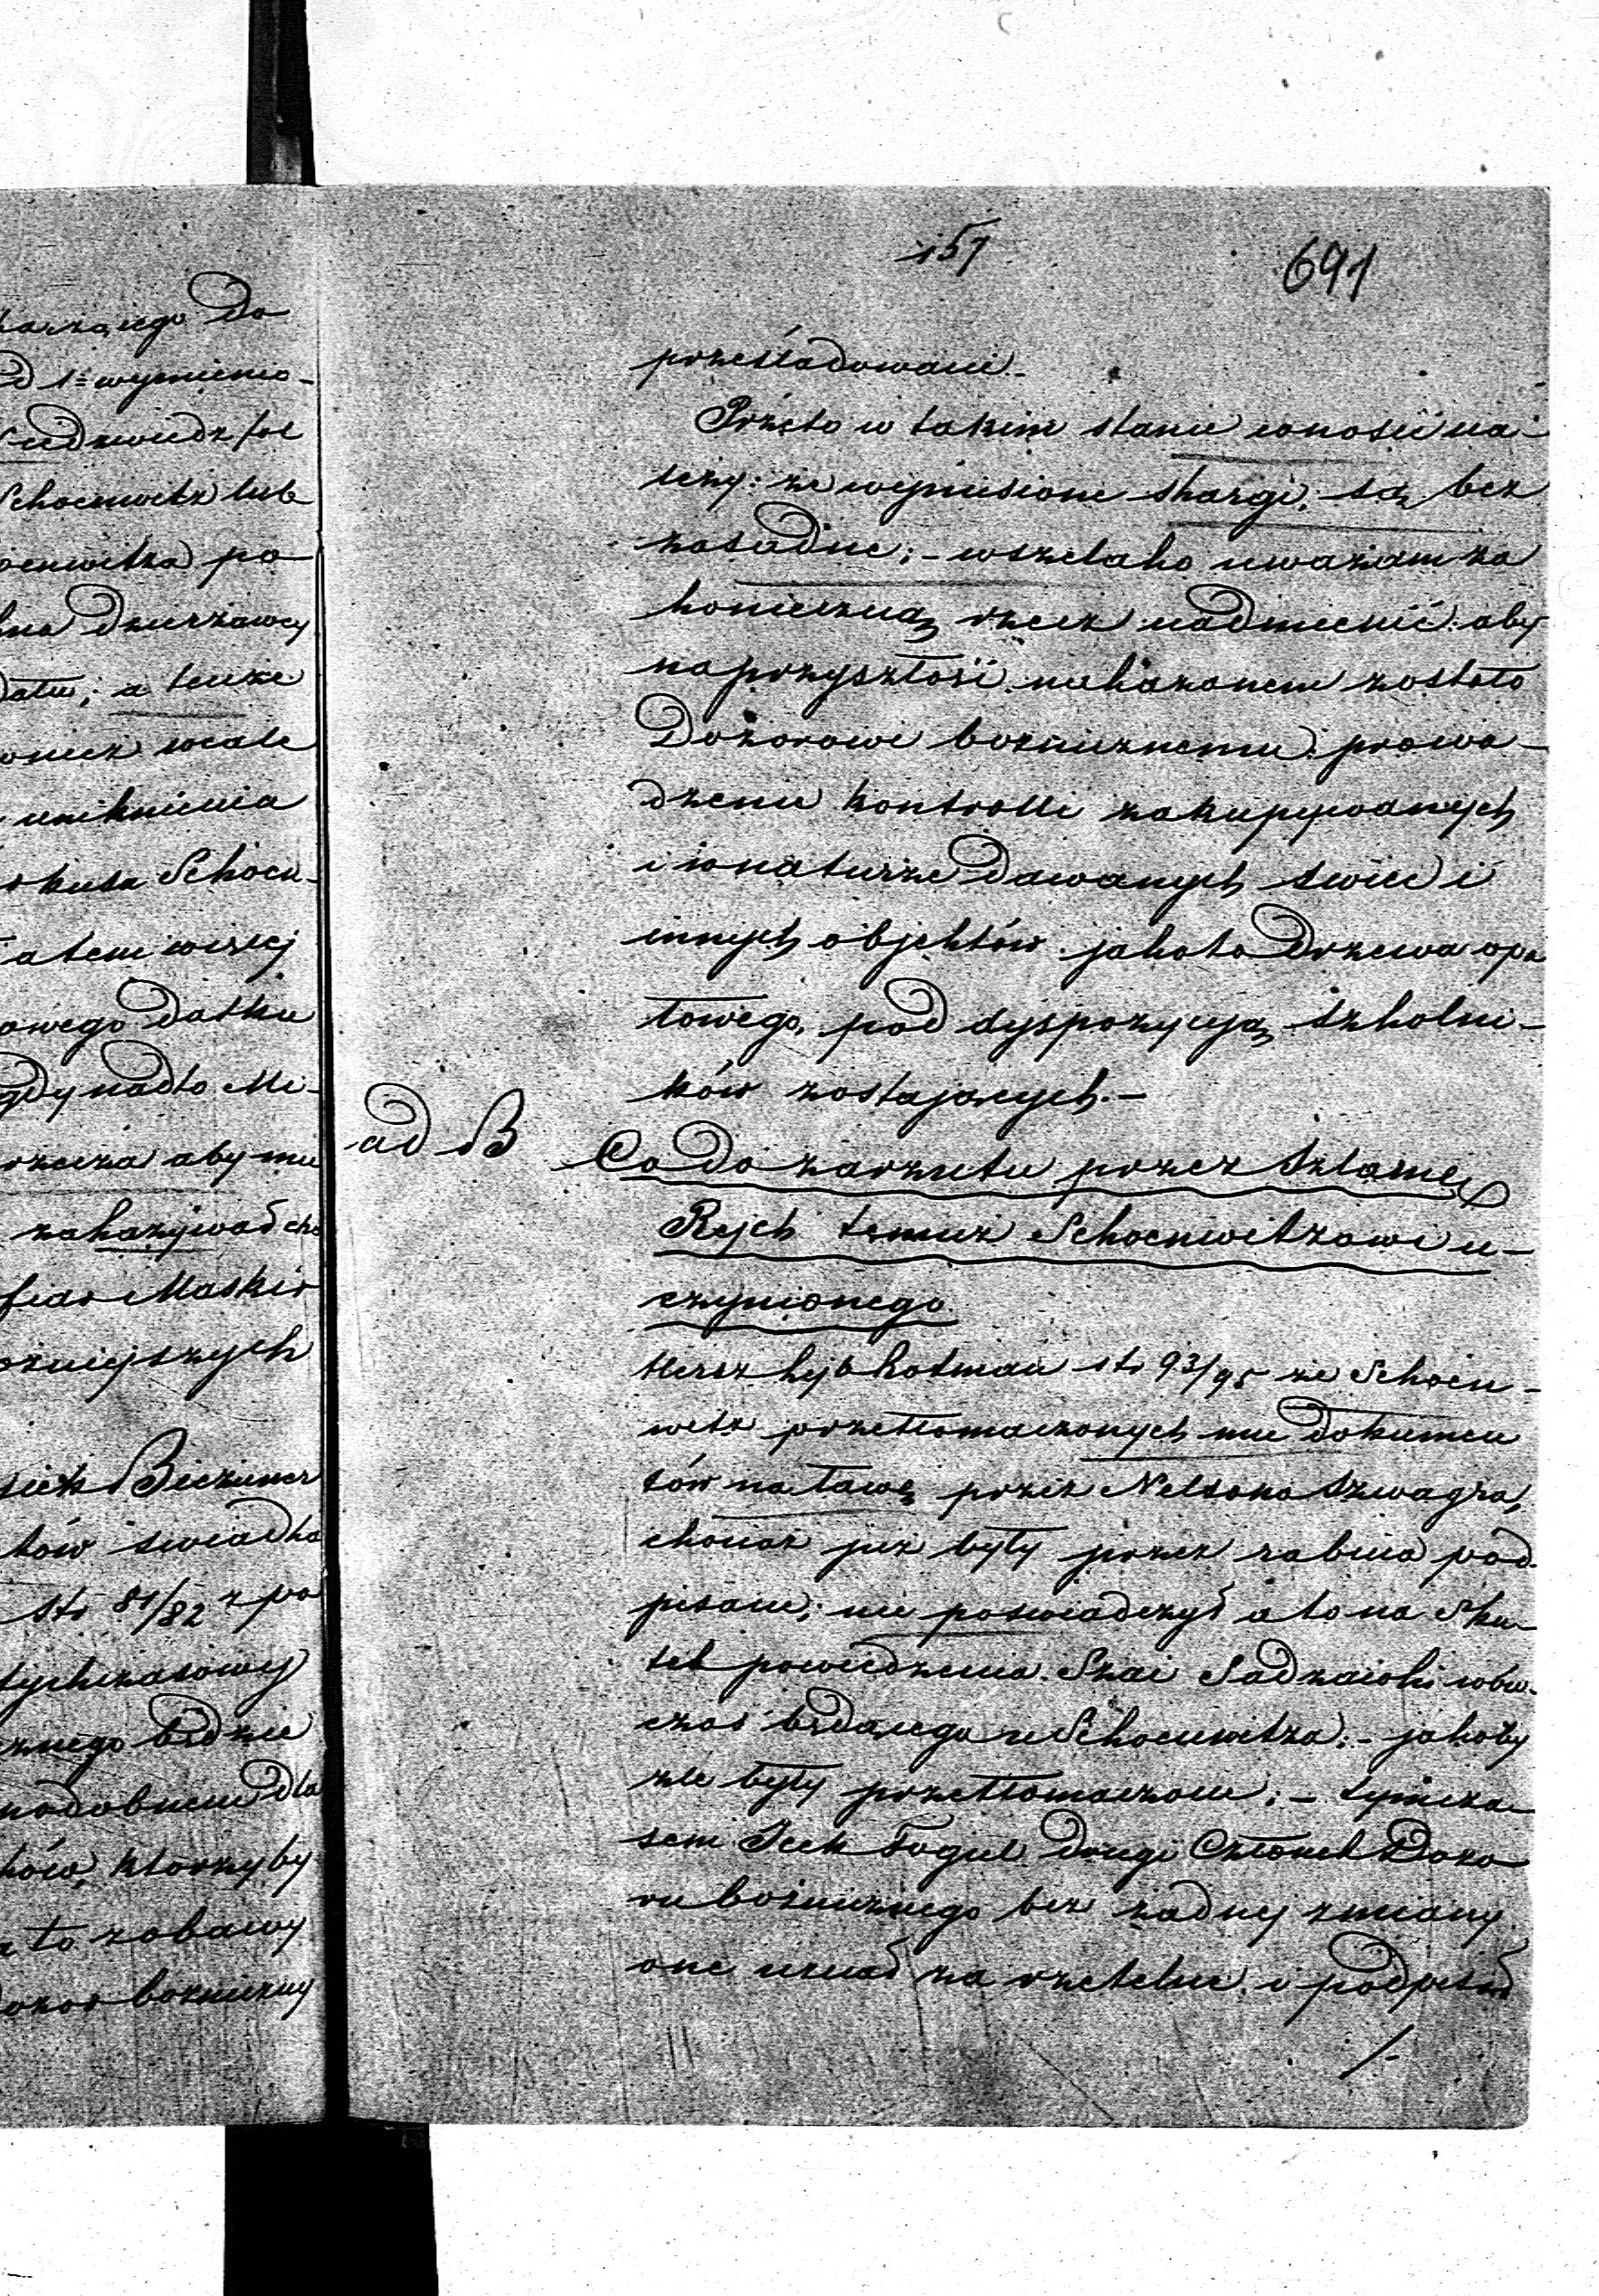 157
691
prześladowani.
Przeto w takim stanie wnosić na-
leży: że wyniesione skargi, są bez
zasadne; - wszelako uważam za
konieczną rzecz nadmienić: aby
naprzyszłość nakazanem zostało
Dozorowi bożnicznemu: prowa-
dzenie kontrolli zakupywanych
i wnaturze dawanych świec i
innych objektów jakoto Drzewa opa
łowego, pod dyspozycją szkolni-
ków zostających. -
ad B
Co do zarzutu przez Szlamę
Rejch temuż Schoenwitzowi u-
czynionego
Hersz Rotman st 93/95 że Schoen-
witz przetłomaczonych mu dokumen
tów na ławę przez Nelsona Szwagra,
chociaż już były przez rabina pod-
pisane; nie poświadczył a to na sku-
tek powiedzenia Szai Sadzawki wów-
czas będącego u Schoenwitza; - jakoby
źle były przetłomaczone; - tymcza-
sem Icek Fogiel drugi Członek Dozo
ru bożnicznego bez żadnej zmiany
one uznał za rzetelne i podpisał
/-
do
wymienio-
Schoenwitz lub
po
Dzierżawcy
; a tenże
wcale
uniknienia
Schoen-
atem więcej
datku
gdy nadto Mi-
aby mu
Biezuner
świadka
st 81/82 z po
będzie
dla
którzyby
to zabawy
bożniczny